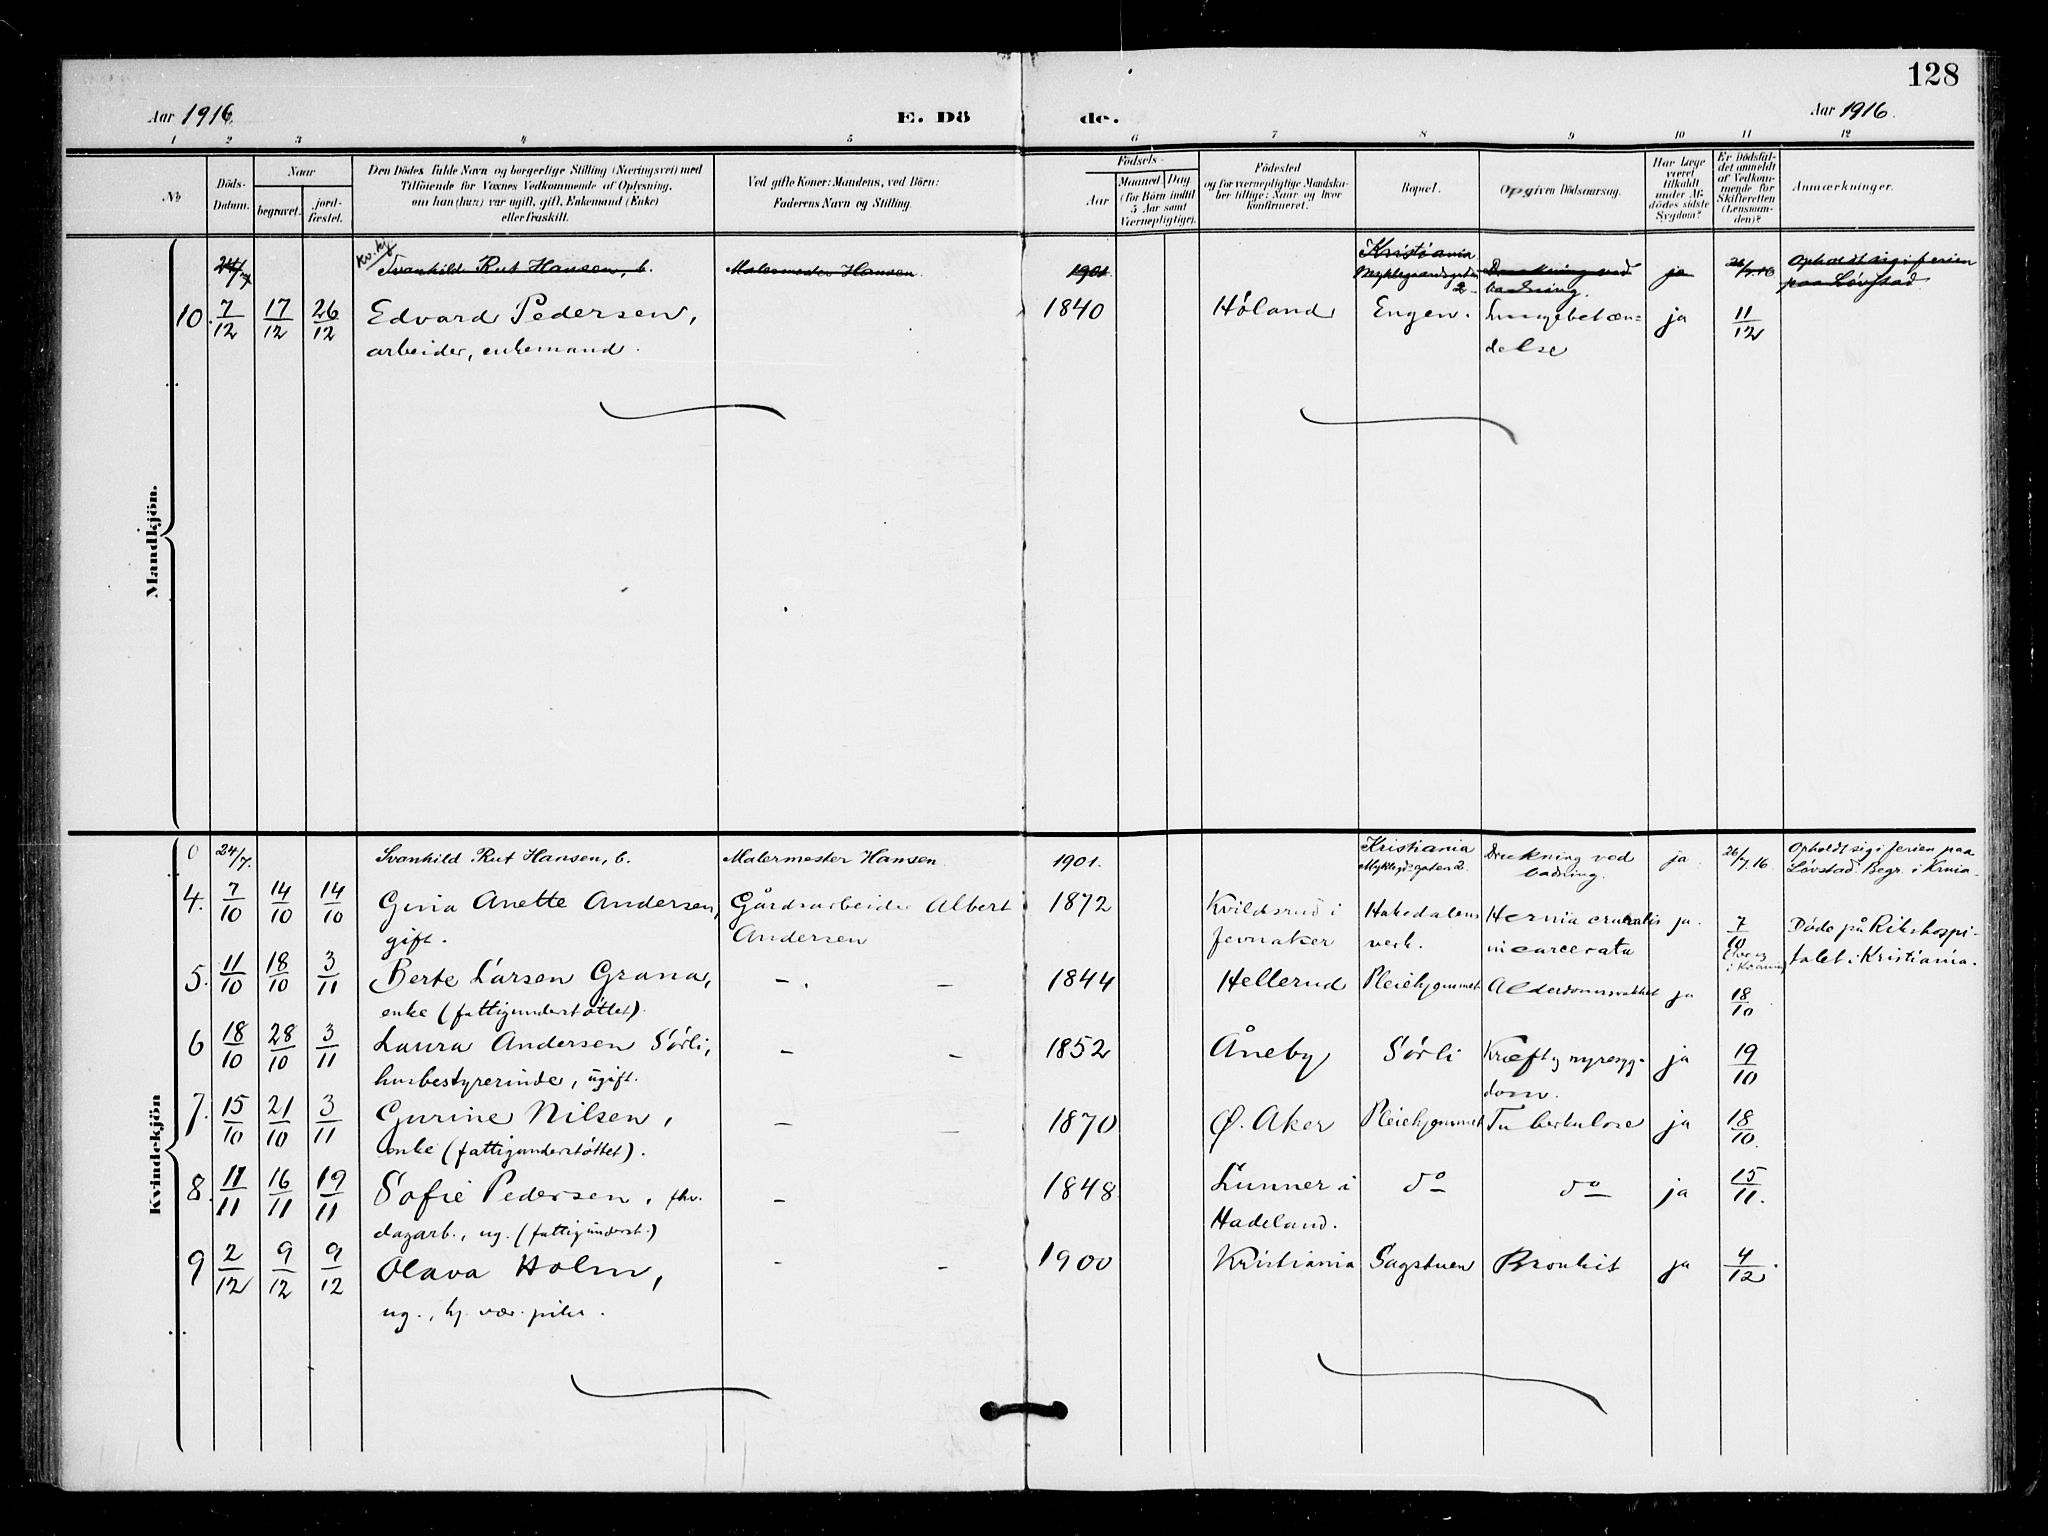 128
Aar 1916. E. Dö de. Aar 1916.
1 2 3 4 5 6 7 8 9 10 11 12
No.
Döds-
Datum.
Naar
begravet.
jord-
fæstet.
Den Dödes fulde Navn og borgerlige Stilling (Næringsvei) med
Tilföiende for Voxnes Vedkommende af Oplysning,
om han (hun) var ugift, gift, Enkemand (Enke)
eller fraskilt.
Ved gifte Koner: Mandens, ved Börn:
Faderens Navn og Stilling.
Födsels-
Aar
Maaned
Dag
(for Börn indtil
5 Aar samt
Værnepligtige).
Födested
og for værnepligtige Mandska-
ber tillige: Naar og hvor
konfirmeret.
Bopæl.
Opgiven Dödsaarsag.
Har Læge
været
tilkaldt
under Af-
dödes sidste
Sygdom?
Er Dödsfal-
det anmeldt
af Vedkom-
mende for
Skifteretten
(Lensman-
den)?
Anmærkninger.
Mandkjön.
Kv.kj.
24/7 Svanhild Rut Hansen, b. Malermester Hansen 1901 Kristiania Drukning ved ja 26/7.16 Opholdt sig i ferien
2 badning. paa Løvstad
10. 7/12 17/12 26/12 Edvard Pedersen, 1840 Høland Engen. Lungebetæn- ja 11/12
arbeider, enkemand. delse
Kvindekjön
0 24/7. Svanhild Rut Hansen, b. Malermester Hansen 1901. Kristiania Drukning ved ja. 26/7.16 Opholdt sig i ferien paa
badning. Løvstad. Begr. i Krnia.
4. 7/10 14/10 14/10 Gina Anette Andersen, Gårdsarbeider Albert 1872 Kvildsrud i Hakedalens Hernia cruralis ja. 7/10 Døde på Rikshospi-
gift. Andersen Jevnaker verk. incarcerata talet i Kristiania.
5. 11/10 18/10 3/11 Berte Larsen Grana, - . - 1844 Hellerud Pleiehjemmet Alderdomssvakhet ja 18/10.
enke (fattigunderstøttet).
6 18/10 28/10 3/11 Laura Andersen Sørli, - - 1852 Åneby Sørli Kræft og nyresyg- ja 19/10
husbestyrerinde, ugift. dom.
7. 15/10 21/10 3/11 Gurine Nilsen, - - 1870 Ø. Aker Pleiehjemmet Tuberkulose ja 18/10.
enke (fattigunderstøttet).
8. 11/11 16/11 19/11 Sofie Pedersen, fhv. - - 1848. Lunner i do do ja 15/11.
dagarb., ug. (fattigunderst.) Hadeland.
9 2/12 9/12 9/12 Olava Holm, - - 1900 Kristiania Sagstuen Bronkit ja 4/12.
ug., hj. vær. pike.